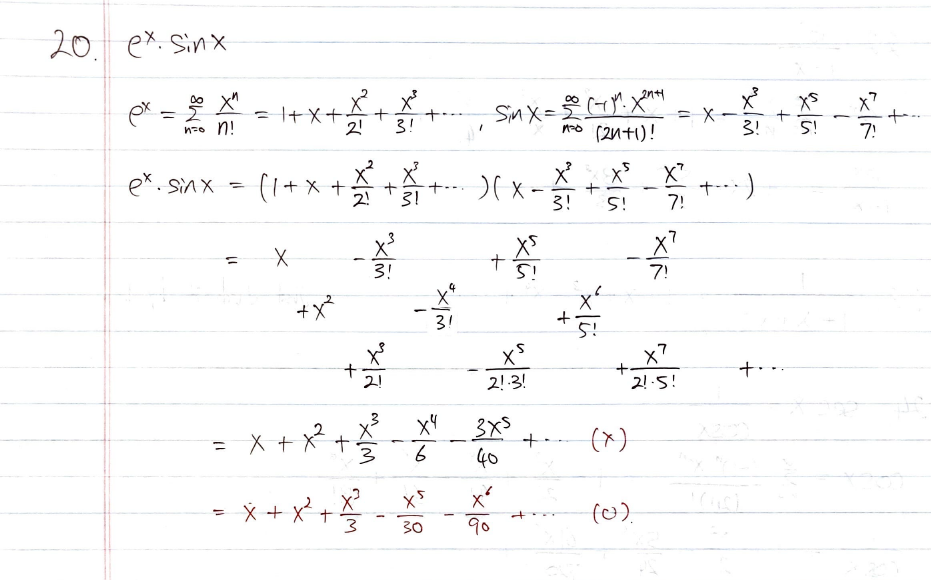 20. eˣ·sinx
eˣ = ∑_{n=0}^{∞} xⁿ/n! = 1+x+x²/2!+x³/3!+···, sinx = ∑_{n=0}^{∞} (-1)ⁿ·x²ⁿ⁺¹/(2n+1)! = x - x³/3! + x⁵/5! - x⁷/7! + ···
eˣ·sinx = (1+x+x²/2!+x³/3!+···)(x - x³/3! + x⁵/5! - x⁷/7! +···)
= x - x³/3! + x⁵/5! - x⁷/7!
+x² - x⁴/3! + x⁶/5!
+x³/2! - x⁵/2!·3! + x⁷/2!·5! +···
= x + x² + x³/3 - x⁴/6 - 3x⁵/40 + ··· (x)
= x + x² + x³/3 - x⁵/30 - x⁶/90 + ··· (o).